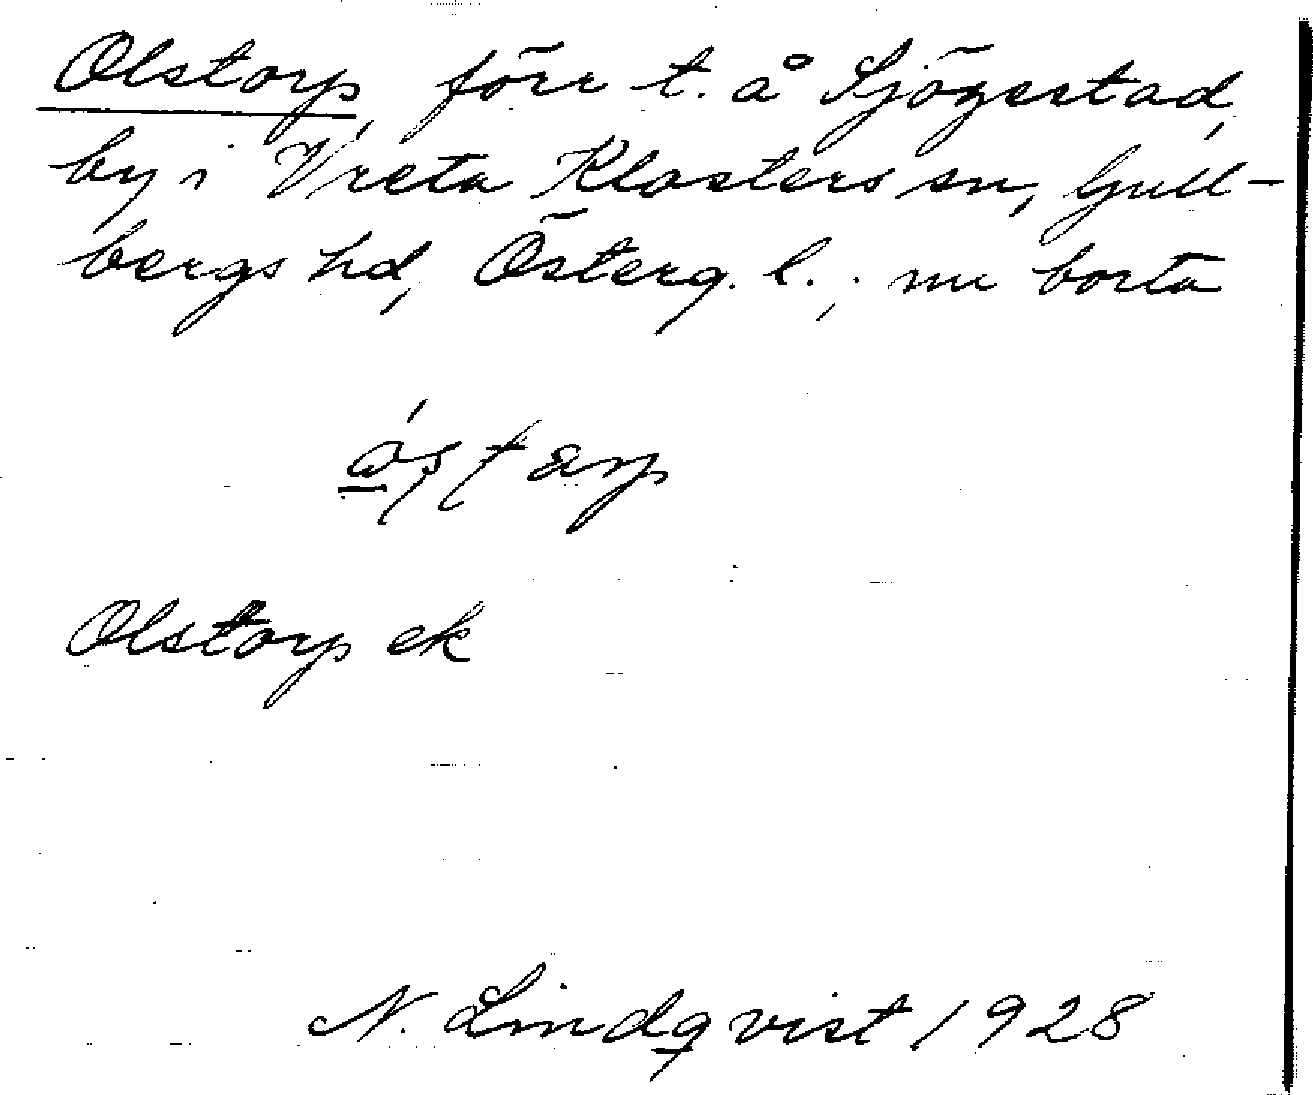 Olstorp, förr t. å Sjögestad,
by i Vreta Klosters sn, Gull-
bergs hd, Österg. l.; nu borta
Olstorp ek
N. Lindqvist 1928